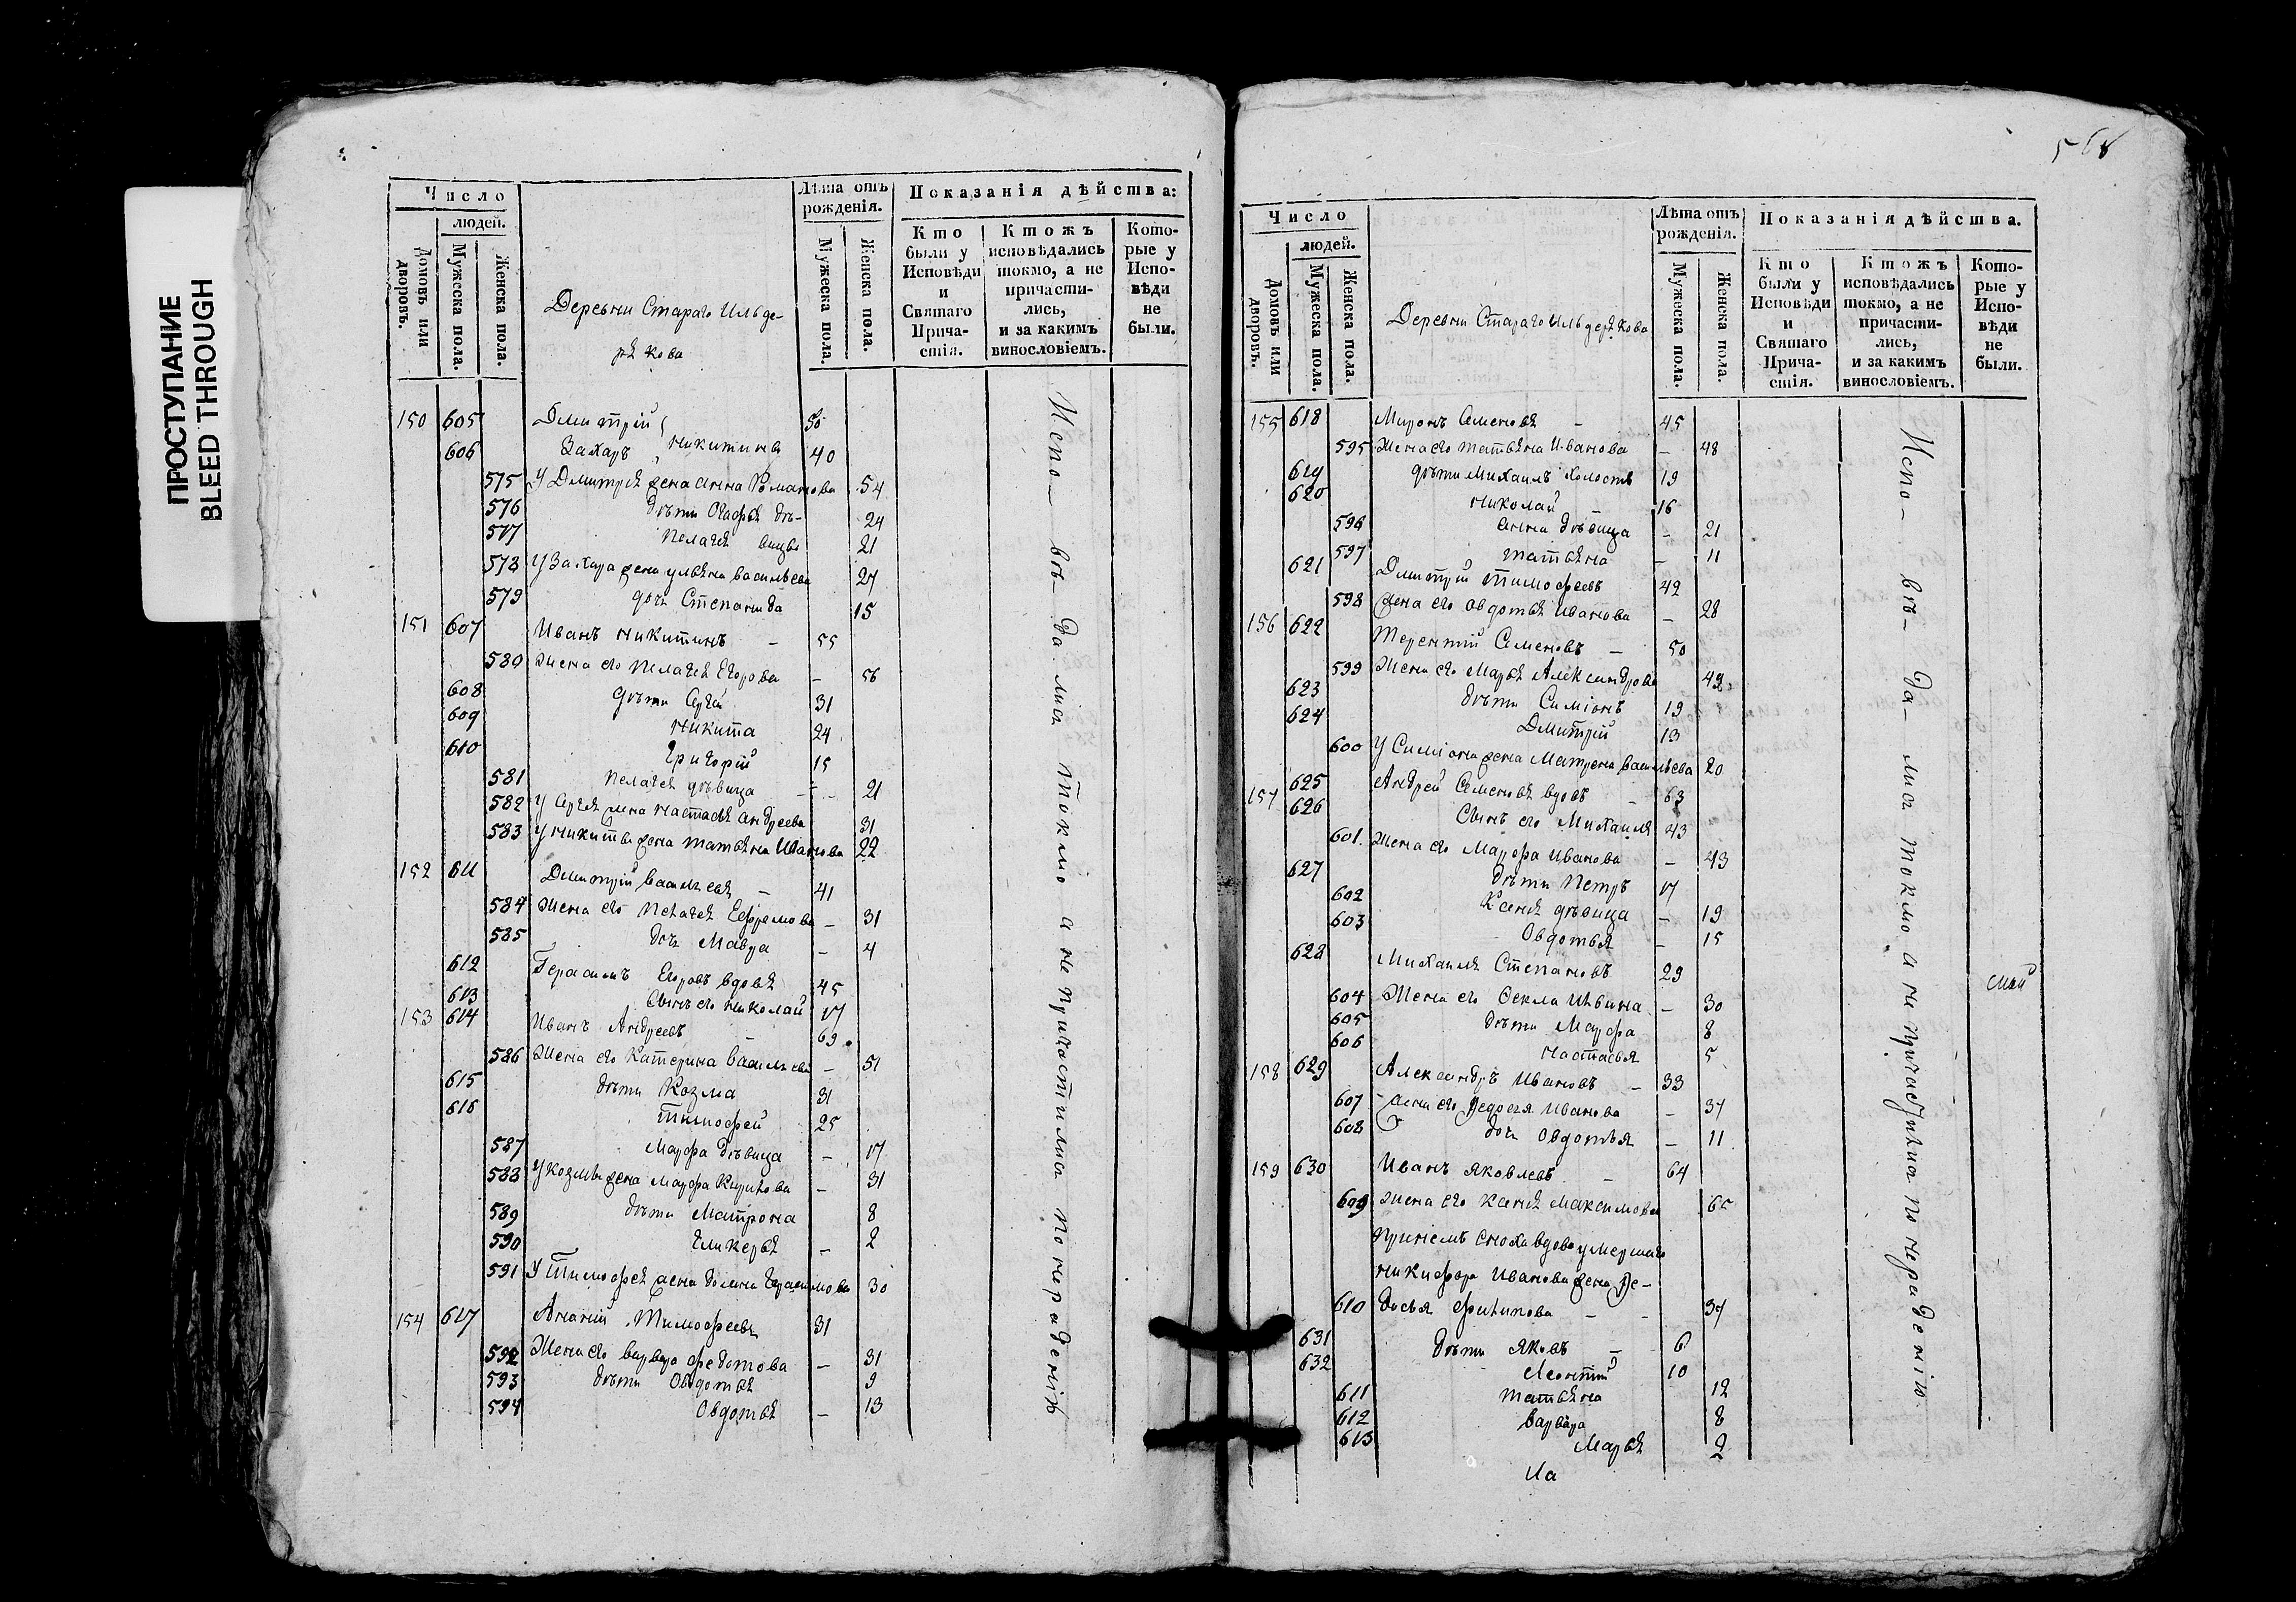 ПРОСТУПАНИЕ
BLEED THROUGH
Число
людей.
Домовъ или дворовъ.
Мужеска пола.
Женска пола.
Деревни Стараго Ильде-
рѣкова
Лѣта отъ рожденія.
Мужеска пола.
Женска пола.
Показанія дѣйства:
Кто были у Исповѣди и Святаго Прича-стія.
Ктожъ исповѣдались токмо, а не причасти-лись, и за какимъ винословіемъ.
Кото-рые у Испо-вѣди не были.
150 605 Дмитрій
606 Захаръ Никитины 40
575 У Дмитрія жена Анна Романова 54
576 дѣти Агафья дѣ- 24
577 Пелагея вицы 21
578 У Захара жена Ульяна Васильева 27
579 дочь Степанида 15
151 607 Иванъ Никитинъ - 55
580 Жена его Пелагея Егорова - 56
608 дѣти Сергей 31
609 Никита 24
610 Григорій 15
581 Пелагея дѣвица - 21
582 У Сергея жена Настасья Андреева 31
583 У Никиты жена Татьяна Иванова 22
152 611 Дмитрій Васильевъ - 41
584 Жена его Пелагея Ефремова - 31
585 дочь Мавра - 4
612 Герасимъ Егоровъ вдовъ 45
613 Сынъ его Николай 17
153 614 Иванъ Андреевъ 69
586 Жена его Катерина Васильева - 51
615 дѣти Козма 31
616 Тимофей 25
587 Марфа дѣвица - 17
588 У Козмы жена Марфа Кирилова - 31
589 дѣти Матрона 8
590 Гликерья - 2
591 У Тимофея жена Домна Герасимова 30
154 617 Ананий Тимофеевъ 31
592 Жена его Варвара Федотова - 31
593 дѣти Овдотья 9
594 Овдотья - 13
Испо- вѣ- да лись токмо а не причастились по нерадению
568
Число
людей.
Домовъ или дворовъ.
Мужеска пола.
Женска пола.
Деревни Стараго Ильдерѣкова
Лѣта отъ рожденія.
Мужеска пола.
Женска пола.
Показанія дѣйства.
Кто были у Исповѣди и Святаго Прича-стія.
Ктожъ исповѣдались токмо, а не причасти-лись, и за какимъ винословіемъ.
Кото-рые у Испо-вѣди не были.
155 618 Миронъ Семеновъ - 45
595 Жена его Татьяна Иванова - 48
619 дѣти Михаилъ холостъ 19
620 Николай - 16
596 Анна дѣвица - 21
597 Татьяна - 11
621 Дмитрій Тимофеевъ 42
598 Жена его Овдотья Иванова - 28
156 622 Терентій Семеновъ - 50
599 Жена его Марья Александрова 42
623 дѣти Симіонъ 19
624 Дмитрій 13
600 У Симіона жена Матрена Васильева 20
157 625 Андрей Семеновъ вдовъ - 63
626 Сынъ его Михаилъ 43
601 Жена его Марфа Иванова - 43
627 дѣти Петръ 17
602 Ксенья дѣвица - 19
603 Овдотья - 15
628 Михаилъ Степановъ 29
604 Жена его Фекла - 30
605 дѣти Марфа 8
606 Настасья 5
158 629 Александръ Ивановъ - 33
607 Жена его Федосья Иванова - 37
608 дочь Овдотья - 11
159 630 Иванъ Яковлевъ - 64
609 Жена его Ксенья Максимова 65
При немъ сноха вдова умершаго
Никифора Иванова жена Фе-
610 досья Филипова - - 37
631 дѣти Яковъ - 6
632 Леонтій 10
611 Татьяна 12
612 Варвара 8
613 Марья 2
Ив
Испо- вѣ- да- лись токмо а не причастились по нерадению